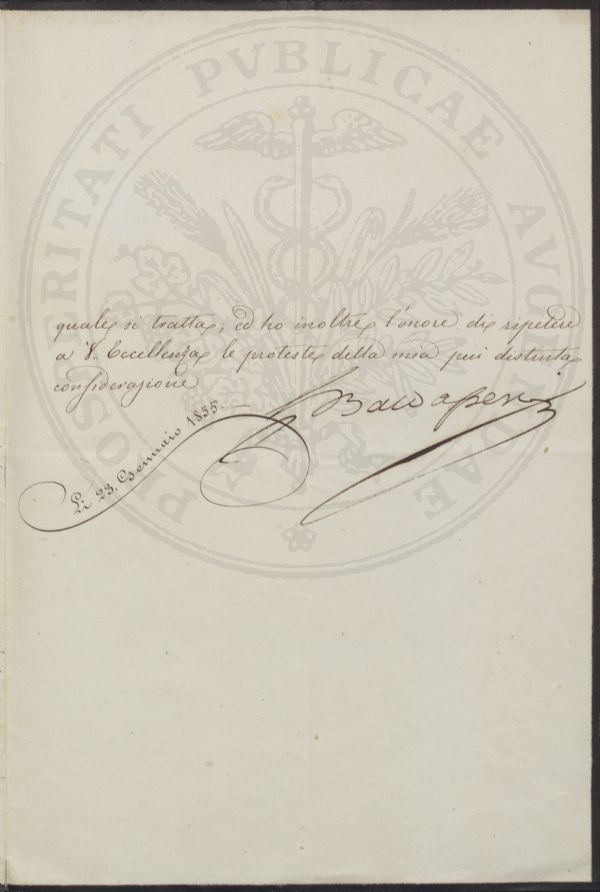 PROSPERITATI PVBLICAE AVGENDAE
quale si tratta; ed ho inoltre l'onore di ripetere
a V. Eccellenza le proteste della mia piú distinta
considerazione
Li 23. Gennaio 1855.